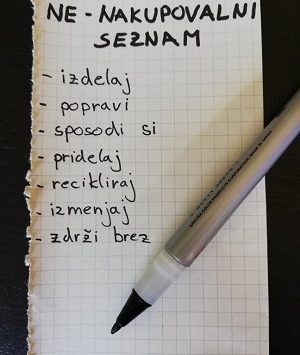 NE-NAKUPOVALNI
SEZNAM
- izdelaj
- popravi
- sposodi si
- pridelaj
- recikliraj
- izmenjaj
- zdrži brez